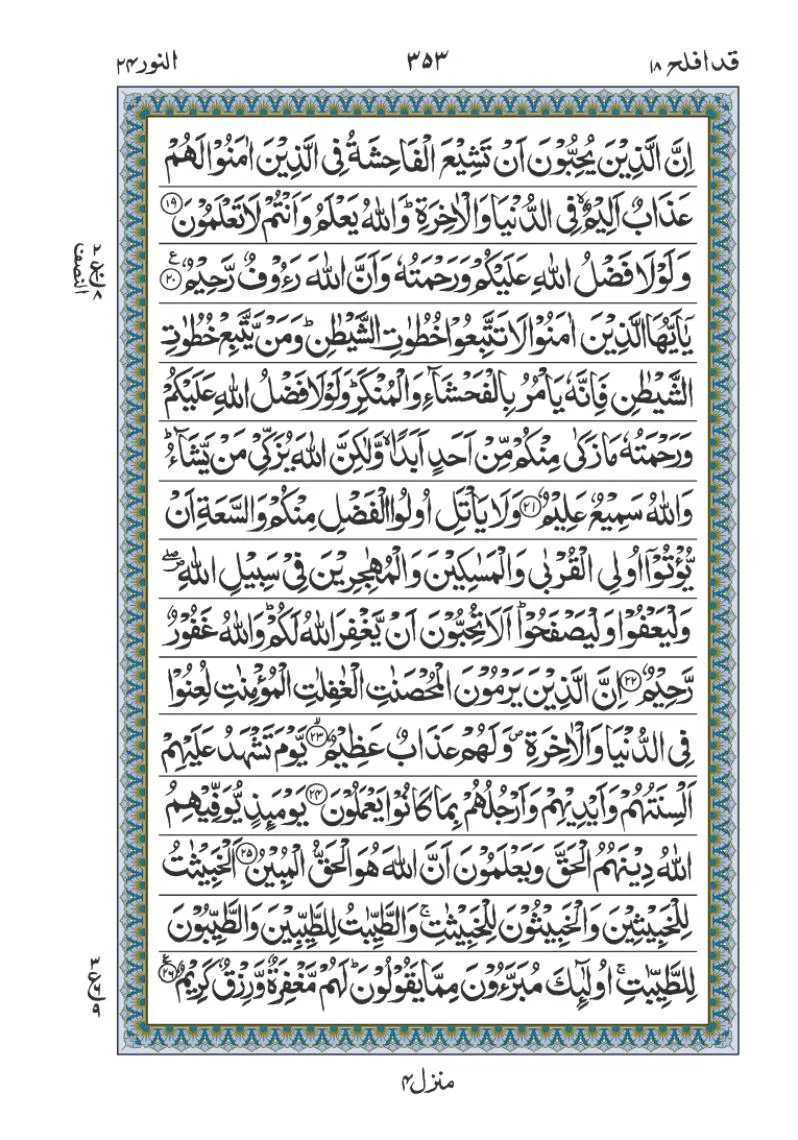 قد افلح ۱۸
۳۵۳
النور ۲۴
اِنَّ الَّذِيْنَ يُحِبُّوْنَ اَنْ تَشِيْعَ الْفَاحِشَةُ فِى الَّذِيْنَ اٰمَنُوْا لَهُمْ
عَذَابٌ اَلِيْمٌ ۙ فِى الدُّنْيَا وَالْاٰخِرَةِ ؕ وَاللّٰهُ يَعْلَمُ وَاَنْتُمْ لَا تَعْلَمُوْنَ ﴿۱۹﴾
وَلَوْلَا فَضْلُ اللّٰهِ عَلَيْكُمْ وَرَحْمَتُهٗ وَاَنَّ اللّٰهَ رَءُوْفٌ رَّحِيْمٌ ﴿۲۰﴾
يٰۤاَيُّهَا الَّذِيْنَ اٰمَنُوْا لَا تَتَّبِعُوْا خُطُوٰتِ الشَّيْطٰنِ ؕ وَمَنْ يَّتَّبِعْ خُطُوٰتِ
الشَّيْطٰنِ فَاِنَّهٗ يَاْمُرُ بِالْفَحْشَآءِ وَالْمُنْكَرِ ؕ وَلَوْلَا فَضْلُ اللّٰهِ عَلَيْكُمْ
وَرَحْمَتُهٗ مَا زَكٰى مِنْكُمْ مِّنْ اَحَدٍ اَبَدًا ۙ وَّلٰكِنَّ اللّٰهَ يُزَكِّىْ مَنْ يَّشَآءُ ؕ
وَاللّٰهُ سَمِيْعٌ عَلِيْمٌ ﴿۲۱﴾ وَلَا يَاْتَلِ اُولُوا الْفَضْلِ مِنْكُمْ وَالسَّعَةِ اَنْ
يُّؤْتُوْۤا اُولِى الْقُرْبٰى وَالْمَسٰكِيْنَ وَالْمُهٰجِرِيْنَ فِىْ سَبِيْلِ اللّٰهِ ۖ
وَلْيَعْفُوْا وَلْيَصْفَحُوْا ؕ اَلَا تُحِبُّوْنَ اَنْ يَّغْفِرَ اللّٰهُ لَكُمْ ؕ وَاللّٰهُ غَفُوْرٌ
رَّحِيْمٌ ﴿۲۲﴾ اِنَّ الَّذِيْنَ يَرْمُوْنَ الْمُحْصَنٰتِ الْغٰفِلٰتِ الْمُؤْمِنٰتِ لُعِنُوْا
فِى الدُّنْيَا وَالْاٰخِرَةِ ۪ وَلَهُمْ عَذَابٌ عَظِيْمٌ ﴿۲۳﴾ يَّوْمَ تَشْهَدُ عَلَيْهِمْ
اَلْسِنَتُهُمْ وَاَيْدِيْهِمْ وَاَرْجُلُهُمْ بِمَا كَانُوْا يَعْمَلُوْنَ ﴿۲۴﴾ يَوْمَئِذٍ يُّوَفِّيْهِمُ
اللّٰهُ دِيْنَهُمُ الْحَقَّ وَيَعْلَمُوْنَ اَنَّ اللّٰهَ هُوَ الْحَقُّ الْمُبِيْنُ ﴿۲۵﴾ اَلْخَبِيْثٰتُ
لِلْخَبِيْثِيْنَ وَالْخَبِيْثُوْنَ لِلْخَبِيْثٰتِ ۚ وَالطَّيِّبٰتُ لِلطَّيِّبِيْنَ وَالطَّيِّبُوْنَ
لِلطَّيِّبٰتِ ۚ اُولٰٓئِكَ مُبَرَّءُوْنَ مِمَّا يَقُوْلُوْنَ ؕ لَهُمْ مَّغْفِرَةٌ وَّرِزْقٌ كَرِيْمٌ ﴿۲۶﴾
النصف
منزل ۴